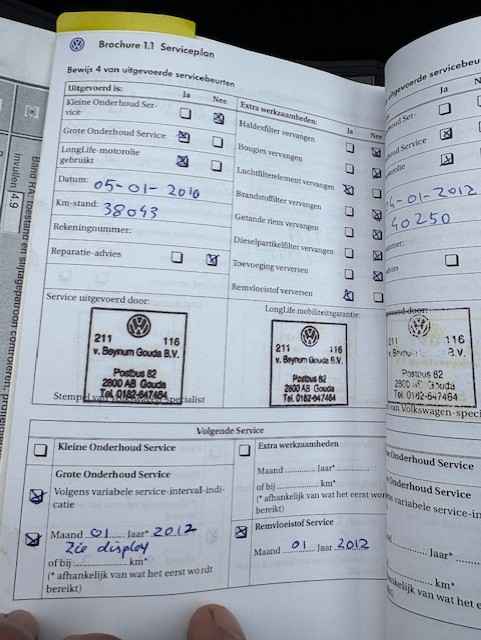 Brochure 1.1 Serviceplan
Bewijs 4 van uitgevoerde servicebeurten
Uitgevoerd is: Ja Nee
Kleine Onderhoud Ser-
vice
Grote Onderhoud Service
LongLife-motorolie
gebruikt
Datum: 05-01-2010
Km-stand: 38043
Rekeningnummer:
Reparatie-advies
Extra werkzaamheden: Ja Nee
Haldexfilter vervangen
Bougies vervangen
Luchtfilterelement vervangen
Brandstoffilter vervangen
Getande riem vervangen
Dieselpartikelfilter vervangen
Toevoeging verversen
Remvloeistof verversen
Service uitgevoerd door:
211 116
v. Beynum Gouda B.V.
Postbus 82
2800 AB Gouda
Tel. 0182-647464
Stempel van Specialist
LongLife mobiliteitsgarantie:
211 116
v. Beynum Gouda B.V.
Postbus 82
2800 AB Gouda
Tel. 0182-647464
Volgende Service
Kleine Onderhoud Service
Grote Onderhoud Service
Volgens variabele service-interval-indi-
catie
Maand 01 Jaar* 2012
Zie display
of bij km*
(* afhankelijk van wat het eerst wordt
bereikt)
Extra werkzaamheden
Maand Jaar*
of bij km*
(* afhankelijk van wat het eerst wor
bereikt)
Remvloeistof Service
Maand 01 Jaar 2012
uitgevoerde servicebeu
-01-2012
40250
211 116
v. Beynum Gouda B.V.
Postbus 82
2800 AB Gouda
Tel. 0182-647464
van Volkswagen-speci
Onderhoud Service
Onderhoud Service
Jaar*
km*
afhankelijk van wat het
Invullen 14.9